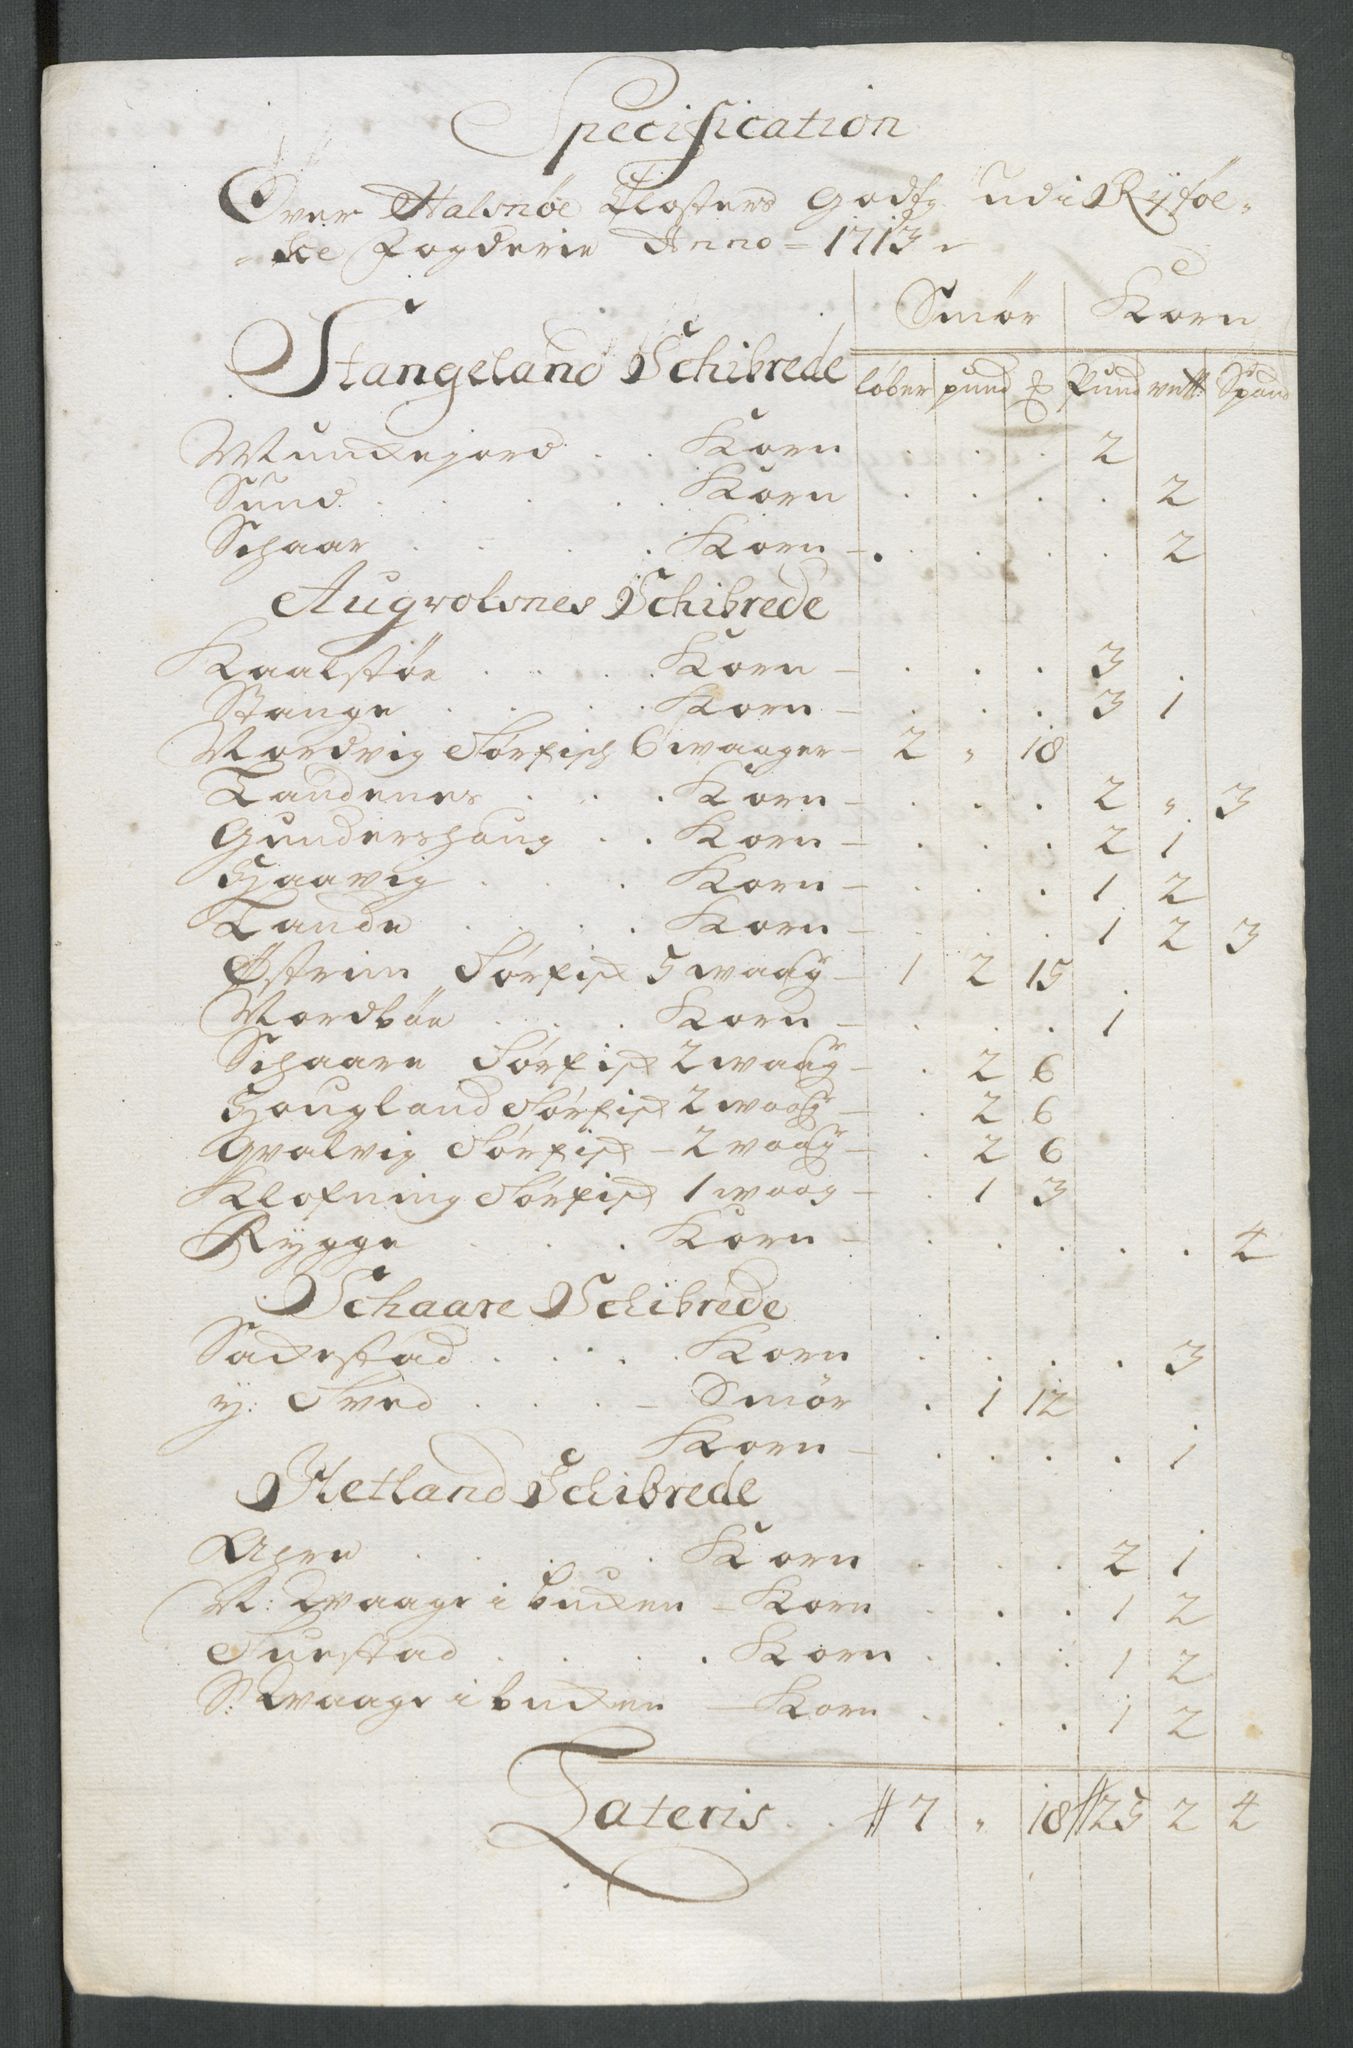 Specification
Over Halsnöe Closters Godtz udi Ryföl-
ske Fogderie Anno = 1713
Smör Korn
Stangeland Schibrede löber pund ℔ Pund vett: Spand
Munckejord . . Korn . . . 2
Sund . . . . . Korn . . . . 2
Schaar . . . . Korn - . . . . 2
Augvolsnes Schibrede
Kaalstöe . . . . Korn - . . . 3 .
Stange . . . . Korn - . . . 3 1
Nordvig Törfisch 6 waager - 2 " 18
Sandenes . . . Korn - . . . 2 " 3
Gundershaug . . Korn - . . . 2 1
Haavig . . . Korn - . . . 1 2
Sande . . . . Korn - . . . 1 2 3
Östrim Törfisk 5 waagr - 1 2 15 .
Nordböe . . . . Korn - . . . 1
Schaare Törfisk 2 waagr - . 2 6
Hougland Törfisk 2 waagr - . 2 6
Gvalvig Törfisk - 2 waagr - . 2 6
Klofning Törfisk 1 waag - . 1 3
Rygge . . . . Korn - . . . . . 4
Schaare Schibrede
Saxestad . . . . Korn . . . . 3
y: Tved . . . . - Smör . 1 12
Korn - . . . . 1
Hetland Schibrede
Uhre . . . . Korn . . . 2 1
N: Qvaage i bucken - Korn . . . 1 2
Tuestad . . . . Korn . . . 1 2
S: Qvaage i bucken - Korn . . . 1 2
Lateris . . # 7 " 18 # 25 2 4